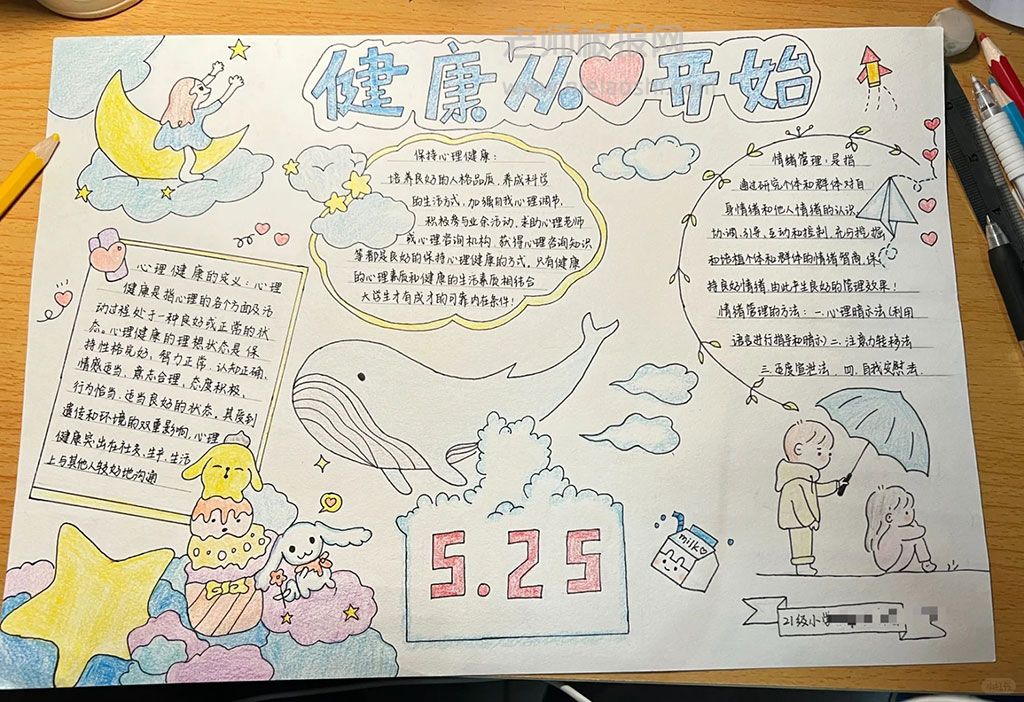 健康从心开始
老师板报网
保持心理健康:
培养良好的人格品质,养成科学
的生活方式,加强自我心理调节,
积极参与业余活动,求助心理老师
或心理咨询机构,获得心理咨询知识
等都是良好的保持心理健康的方式。只有健康
的心理素质和健康的生活素质相结合
大学生才有成才的可靠内在条件!
情绪管理:是指
通过研究个体和群体对自
身情绪和他人情绪的认识
协调,引导,互动和控制,充分挖掘
和培植个体和群体的情绪智商,保
持良好情绪,由此产生良好的管理效果!
情绪管理的方法:一.心理暗示法(利用
语言进行指导和暗示)二.注意力转移法
三.适度宣泄法. 四.自我安慰法.
心理健康的定义:心理
健康是指心理的各个方面及活
动过程处于一种良好或正常的状
态。心理健康的理想状态是保
持性格完好,智力正常,认知正确,
情感适当,意志合理,态度积极,
行为恰当,适当良好的状态。其受到
遗传和环境的双重影响,心理
健康突出在社交、生产、生活
上与其他人较好地沟通
5.25
milk
21级小学
小红书